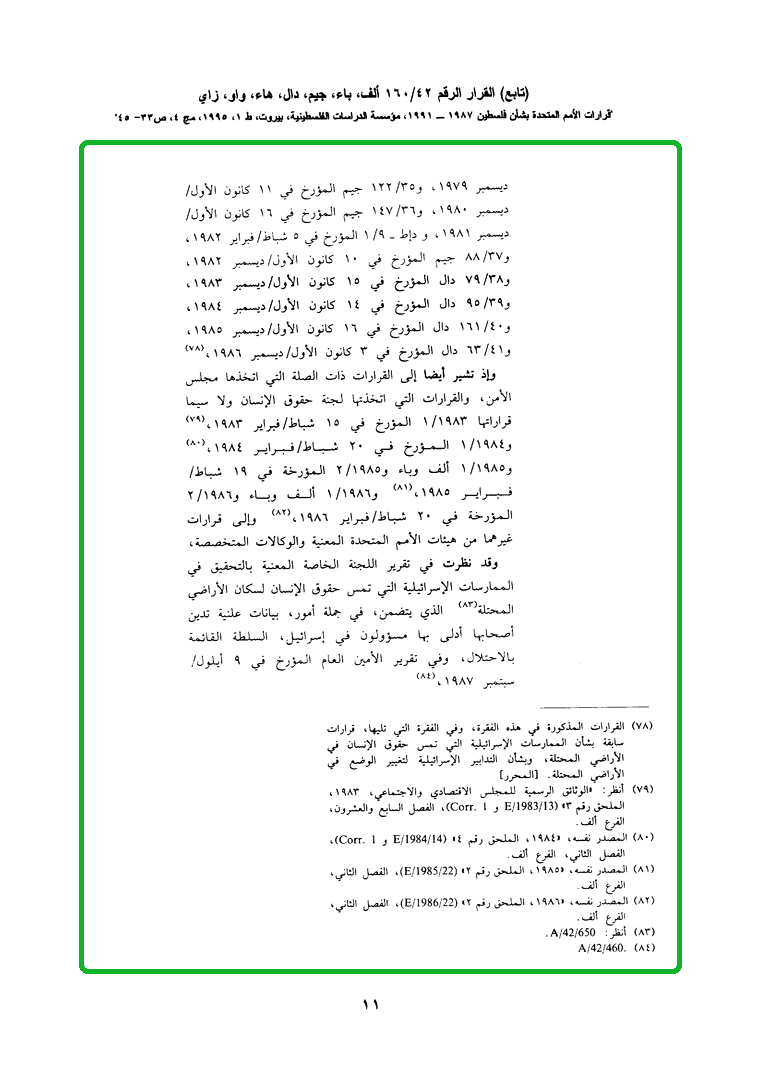 (تابع) القرار الرقم ١٦٠/٤٢ ألف، باء، جيم، دال، هاء، واو، زاي
"قرارات الأمم المتحدة بشأن فلسطين ١٩٨٧ ــ ١٩٩١، مؤسسة الدراسات الفلسطينية، بيروت، ط ١، ١٩٩٥، مج ٤، ص٣٣- ٤٥"
ديسمبر ١٩٧٩، و١٢٢/٣٥ جيم المؤرخ في ١١ كانون الأول/
ديسمبر ١٩٨٠، و١٤٧/٣٦ جيم المؤرخ في ١٦ كانون الأول/
ديسمبر ١٩٨١، و دإط ـ ١/٩ المؤرخ في ٥ شباط/فبراير ١٩٨٢،
و٨٨/٣٧ جيم المؤرخ في ١٠ كانون الأول/ديسمبر ١٩٨٢،
و٧٩/٣٨ دال المؤرخ في ١٥ كانون الأول/ديسمبر ١٩٨٣،
و٩٥/٣٩ دال المؤرخ في ١٤ كانون الأول/ديسمبر ١٩٨٤،
و١٦١/٤٠ دال المؤرخ في ١٦ كانون الأول/ديسمبر ١٩٨٥،
و٦٣/٤١ دال المؤرخ في ٣ كانون الأول/ديسمبر ١٩٨٦،(٧٨)
وإذ تشير أيضا إلى القرارات ذات الصلة التي اتخذها مجلس
الأمن، والقرارات التي اتخذتها لجنة حقوق الإنسان ولا سيما
قراراتها ١/١٩٨٣ المؤرخ في ١٥ شباط/فبراير ١٩٨٣،(٧٩)
و١/١٩٨٤ المؤرخ في ٢٠ شباط/فبراير ١٩٨٤،(٨٠)
و١/١٩٨٥ ألف وباء و٢/١٩٨٥ المؤرخة في ١٩ شباط/
فبراير ١٩٨٥،(٨١) و١/١٩٨٦ ألف وباء و٢/١٩٨٦
المؤرخة في ٢٠ شباط/فبراير ١٩٨٦،(٨٢) وإلى قرارات
غيرهما من هيئات الأمم المتحدة المعنية والوكالات المتخصصة،
وقد نظرت في تقرير اللجنة الخاصة المعنية بالتحقيق في
الممارسات الإسرائيلية التي تمس حقوق الإنسان لسكان الأراضي
المحتلة(٨٣) الذي يتضمن، في جملة أمور، بيانات علنية تدين
أصحابها أدلى بها مسؤولون في إسرائيل، السلطة القائمة
بالاحتلال، وفي تقرير الأمين العام المؤرخ في ٩ أيلول/
سبتمبر ١٩٨٧،(٨٤)
(٧٨) القرارات المذكورة في هذه الفقرة، وفي الفقرة التي تليها، قرارات
سابقة بشأن الممارسات الإسرائيلية التي تمس حقوق الإنسان في
الأراضي المحتلة، وبشأن التدابير الإسرائيلية لتغيير الوضع في
الأراضي المحتلة. [المحرر]
(٧٩) أنظر: «الوثائق الرسمية للمجلس الاقتصادي والاجتماعي، ١٩٨٣،
الملحق رقم ٣» (E/1983/13 و Corr. 1)، الفصل السابع والعشرون،
الفرع ألف.
(٨٠) المصدر نفسه، «١٩٨٤، الملحق رقم ٤» (E/1984/14 و Corr. 1)،
الفصل الثاني، الفرع ألف.
(٨١) المصدر نفسه، «١٩٨٥، الملحق رقم ٢» (E/1985/22)، الفصل الثاني،
الفرع ألف.
(٨٢) المصدر نفسه، «١٩٨٦، الملحق رقم ٢» (E/1986/22)، الفصل الثاني،
الفرع ألف.
(٨٣) أنظر: A/42/650.
(٨٤) A/42/460.
١١